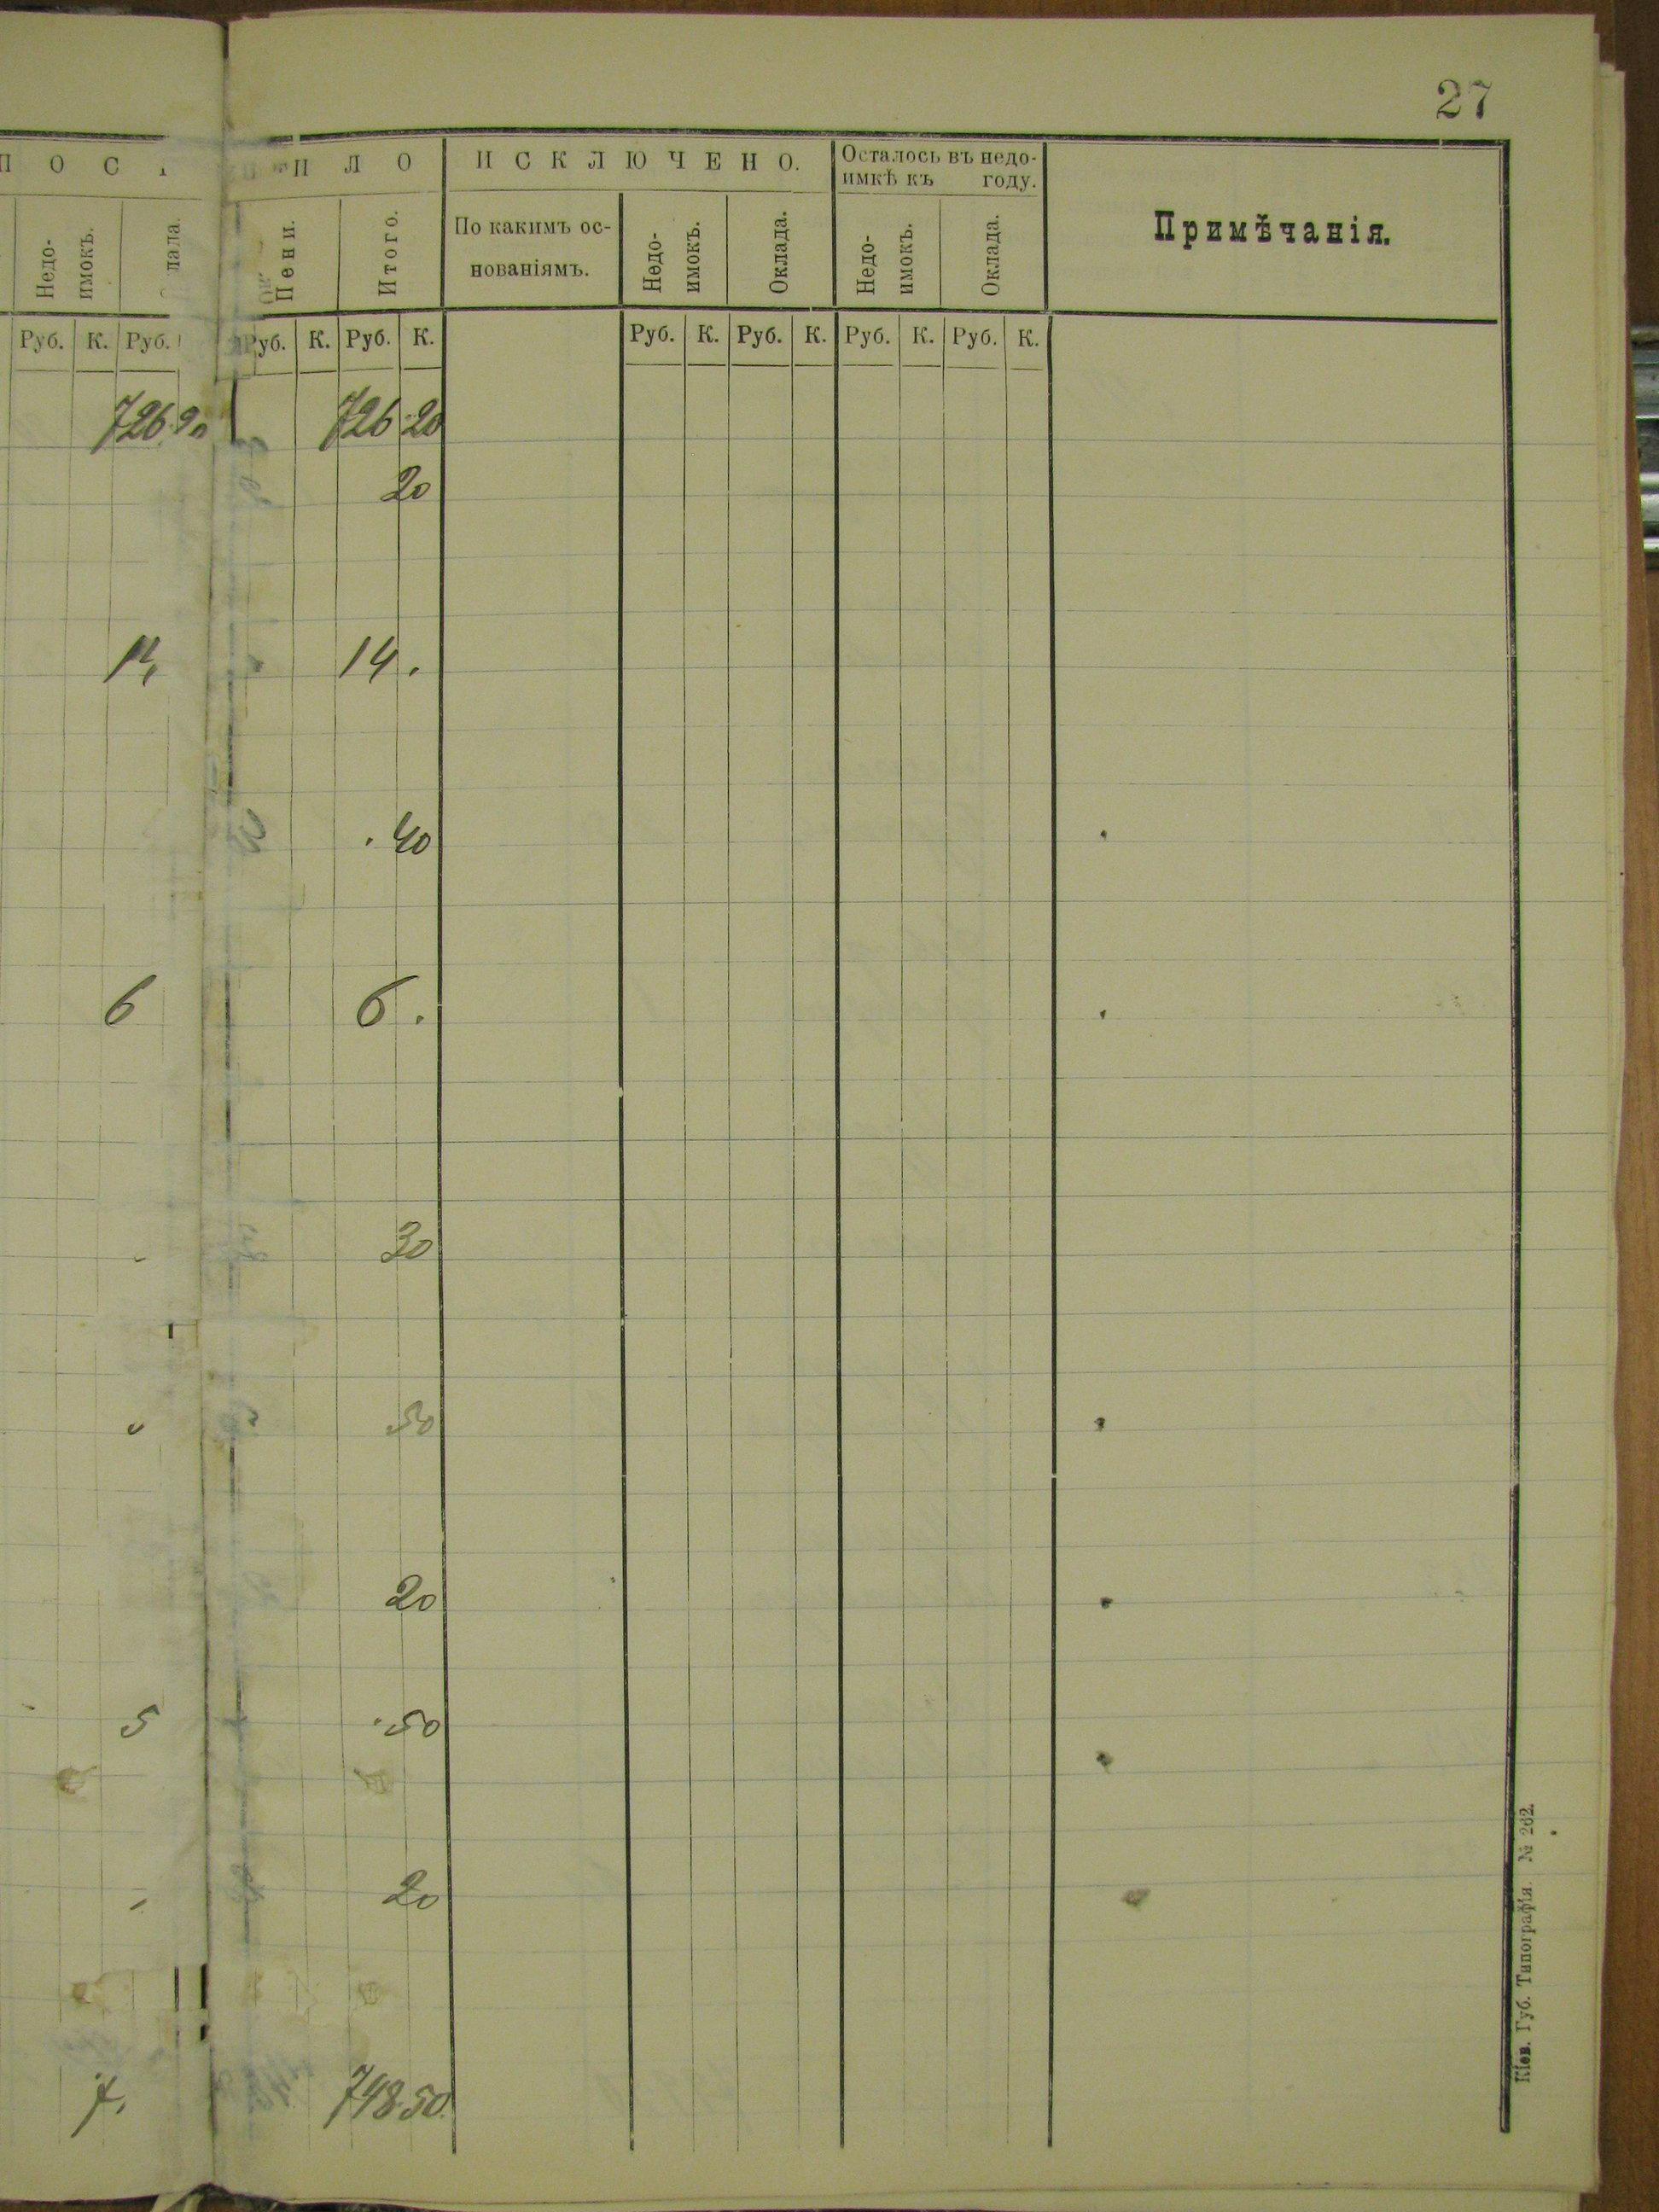 27
ПОС
ИЛО
ИСКЛЮЧЕНО.
Осталось въ недо-
имкѣ къ году.
Примѣчанія.
Недо-
имокъ.
Пени.
Итого.
По какимъ ос-
нованіямъ.
Недо-
имокъ.
Оклада.
Недо-
имокъ.
Оклада.
Руб. К. Руб. Руб. К. Руб. К. Руб. К. Руб. К. Руб. К. Руб. К.
726 726 20
20
14 .
. 40
6 6 .
30
50
20
5 50
20
748 50
Кіев. Губ. Типографія. № 262.